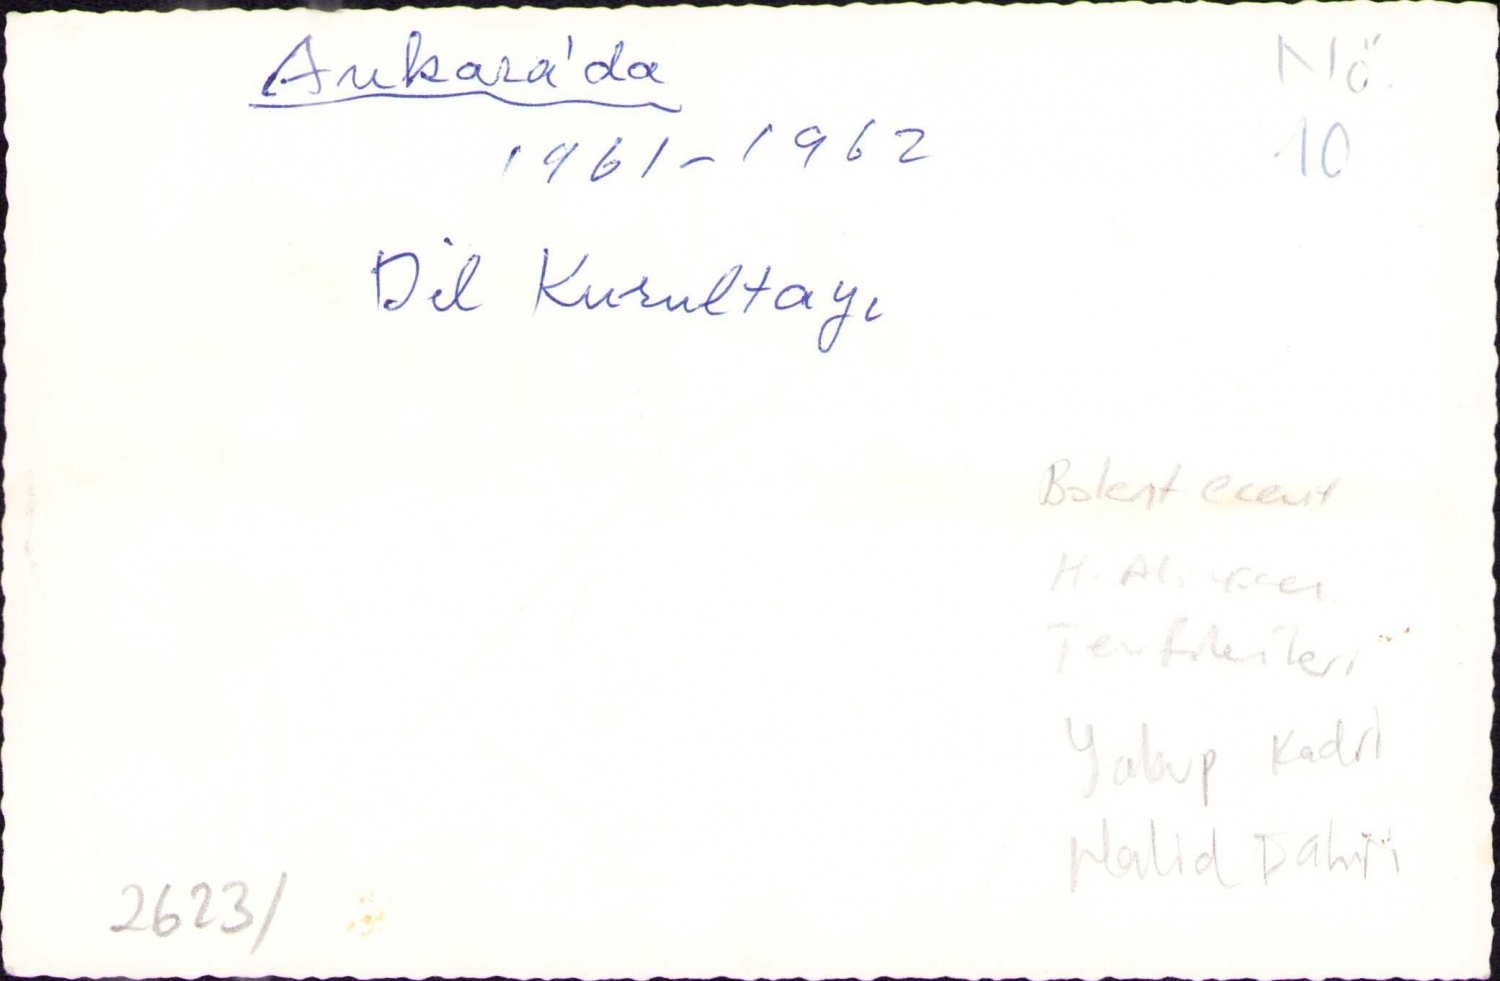 Ankara'da
1961-1962
Dil Kurultayı
Nö.
10
Bülent Ecevit
H. Ali
Yakup Kadri
Halid
2623/